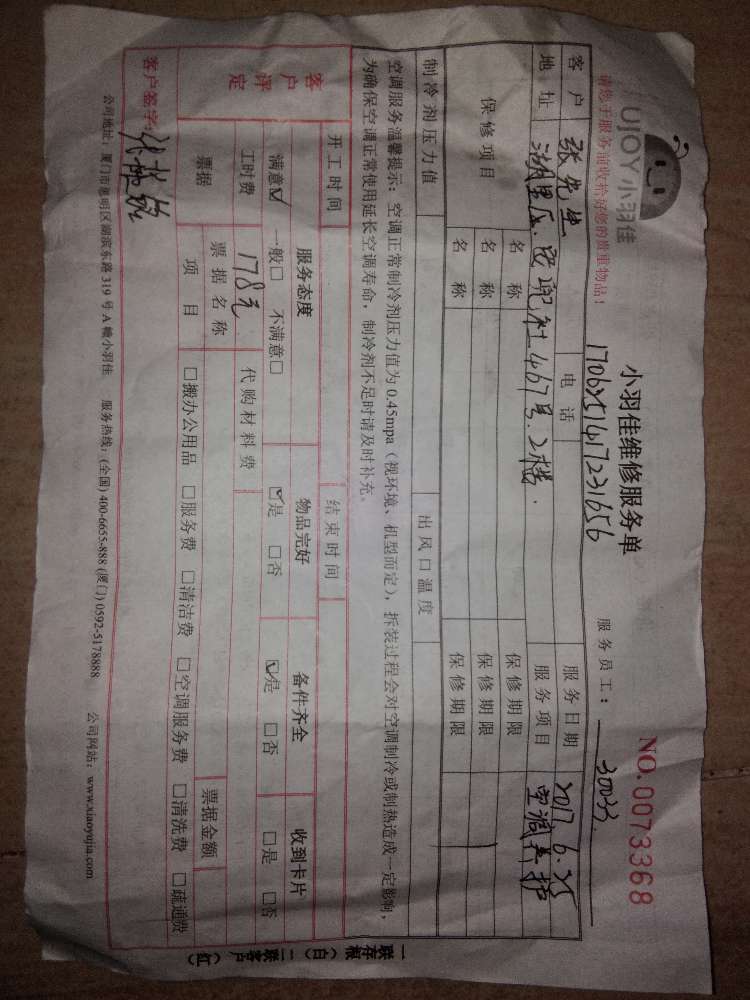 UJOY小羽佳
小羽佳维修服务单
NO.0073368
请您于服务前收拾好您的贵重物品！
服务员工：30033
客户 张先生 电话 服务日期 2017.6.25
地址 湖里区 殿前社467号.2楼. 服务项目
保修项目 名称 保修期限
名称 保修期限
名称 保修期限
制冷剂压力值 出风口温度
空调服务温馨提示：空调正常制冷剂压力值为0.45mpa（视环境、机型而定），拆装过程会对空调制冷或制热造成一定影响，
为确保空调正常使用延长空调寿命，制冷剂不足时请及时补充。
开工时间 结束时间
客户评定 服务态度 物品完好 备件齐全 收到卡片
满意☑ 一般□ 不满意□ ☑是 □否 ☑是 □否 □是 □否
工时费 178元 代购材料费
票据 票据名称 票据金额
项目 □搬办公用品 □服务费 □清洁费 □空调服务费 □清洗费 □疏通费
客户签字：
公司地址：厦门市思明区湖滨东路319号A幢小羽佳 服务热线：(全国) 400-6655-888 (厦门) 0592-5178888 公司网站：www.xiaoyujia.com
一联存根（白）二联客户（红）